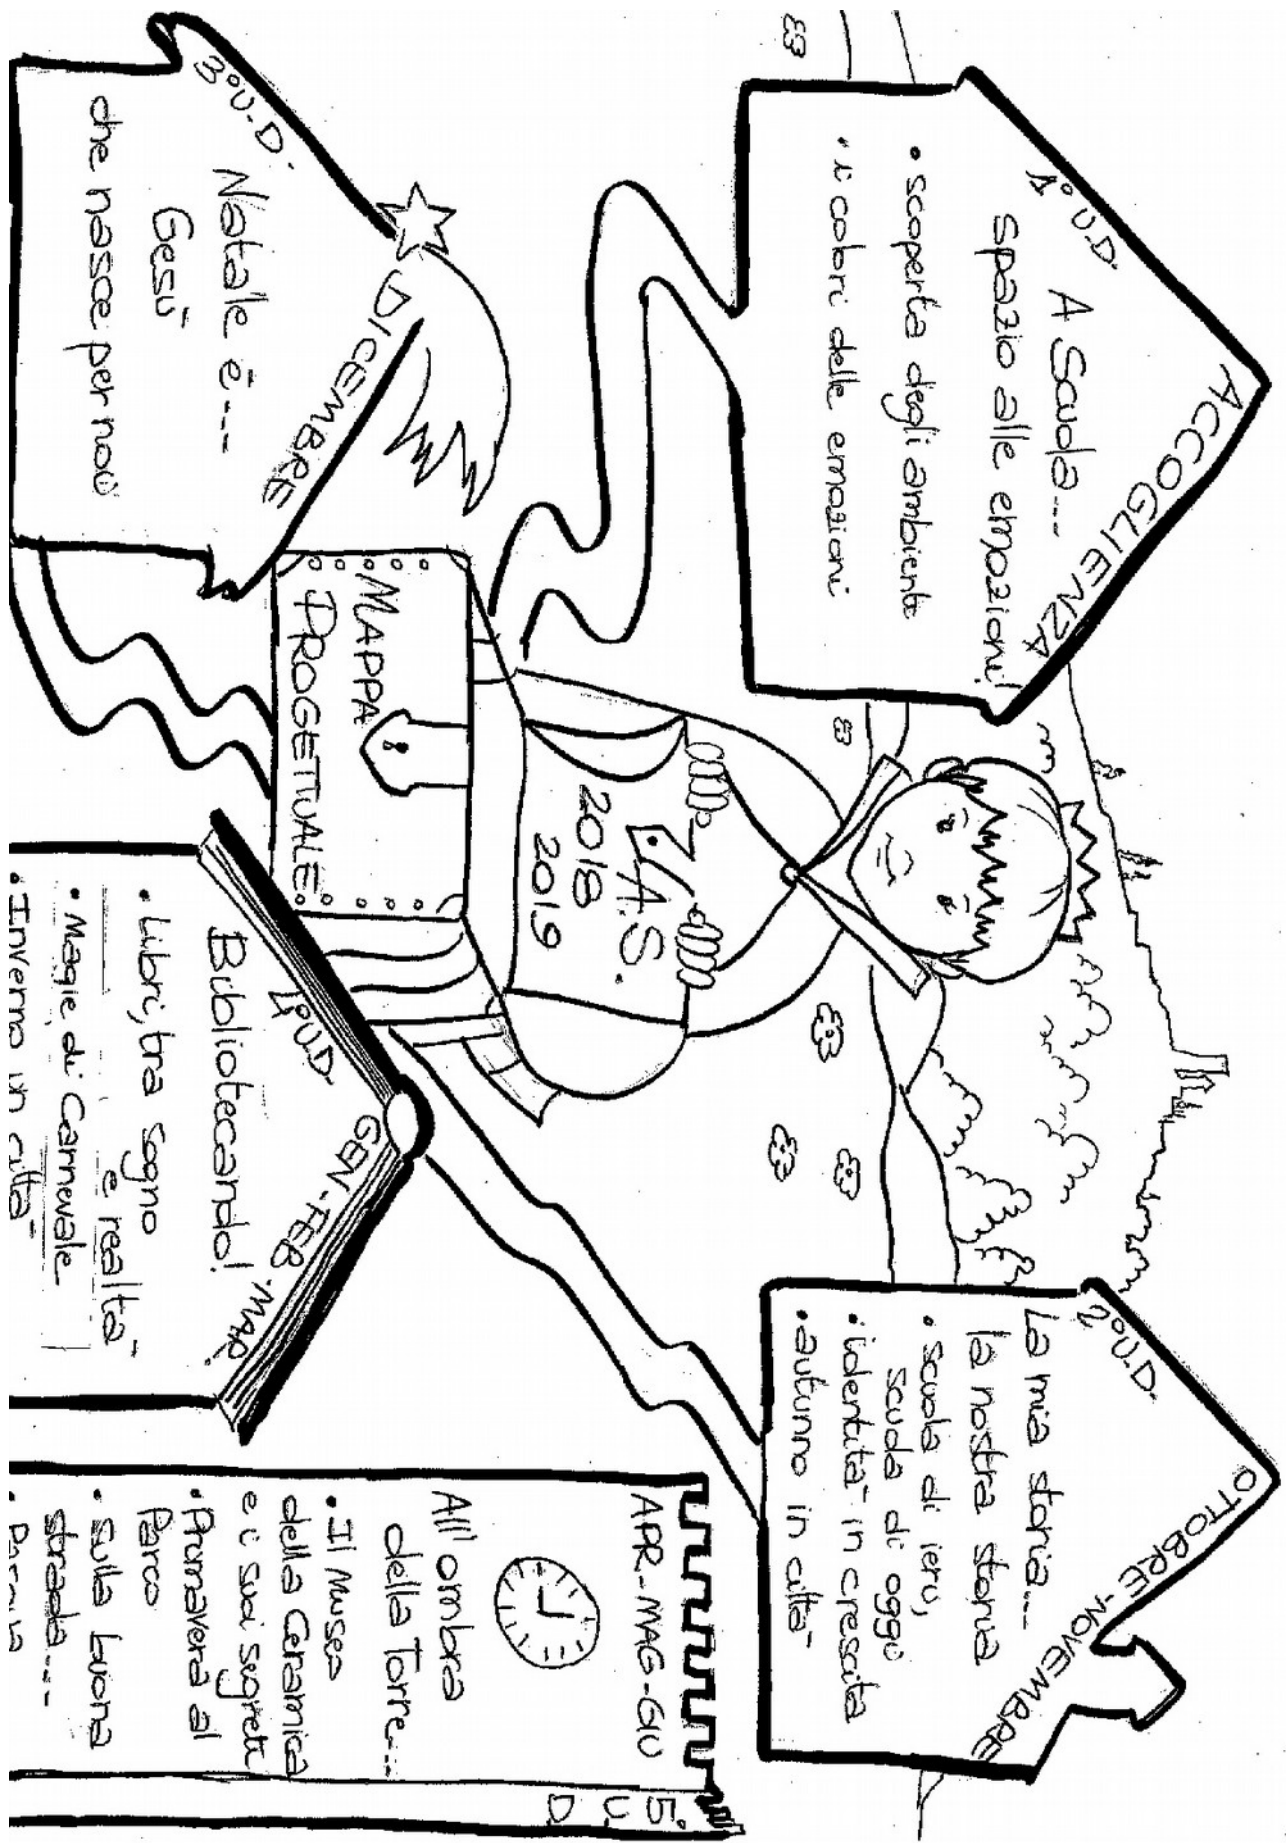 1° U.D.
ACCOGLIENZA
A Scuola...
spazio alle emozioni!
• scoperta degli ambienti
• i colori delle emozioni
2° U.D.
OTTOBRE-NOVEMBRE
La mia storia...
la nostra storia
• scuola di ieri,
scuola di oggi
• identità in crescita
• autunno in città
A.S.
2018
2019
MAPPA
PROGETTUALE
3° U.D.
DICEMBRE
Natale è...
Gesù
che nasce per noi
4° U.D.
GEN-FEB-MAR.
Bibliotecando!
• Libri, tra sogno
e realtà
• Magie di Carnevale
• Inverno in città
5° U D
APR-MAG-GIU
All'ombra
della Torre...
• Il Museo
della Ceramica
e i suoi segreti
• Primavera al
Parco
• sulla buona
strada...